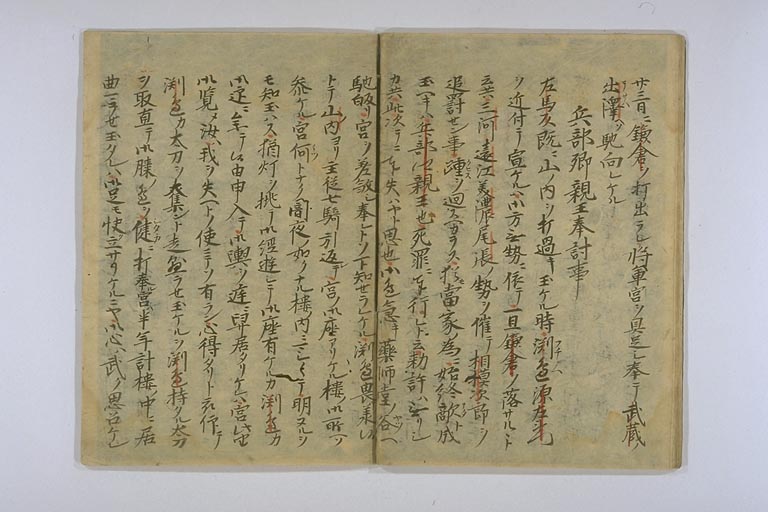 廿三日ニ鎌倉ヲ打出ラレ将軍宮ヲ具足シ奉テ武蔵
出澤ヘ馳向レケル
兵部卿親王奉討事
左馬頭既ニ山ノ内ヲ打過キ玉ケル時渕邉源左
ヲ近付テ宣ケルハ小方無勢ニ依テ一旦鎌倉ヲ落サルヽト
云共三河遠江美濃尾張ノ勢ヲ催テ相模次郎ヲ
追罸せン事踵ヲ迴スヘカラス猶當家為ニ始終敵ト成
玉ヘキハ兵部卿親王也死罪ニ行レト云勅許ハ無リシ
カ共此次テニ失ハヤト思也小邉急キ薬師堂ノ谷ヘ
馳皈リ宮ヲ差殺シ奉レトソ下知せラレケル渕邉畏承ト
トテ山ノ内ヨリ主従七騎引返テ宮ノ御座アリケル楼ノ御所ヘ
参ケル宮何トナク闇夜ノ如クナル楼ノ内ニシテ夜明ヌルヲ
モ知玉ハス猶灯ヲ挑テ御経遊シテ御座有ケルカ渕邉カ
御迎ニ参テ候由申入テ御輿ヲ庭ニ舁居タリケレハ宮此由
御覧メ汝ハ我ヲ失ヘトノ使ニテソ有ラン心得タリト被仰テ
渕邉カ太刀ヲ奪ント走懸ラせ玉ケルヲ渕邉持タル太刀
ヲ取直テ御膝邉ヲ健ニ打奉宮半年計楼中ニ居
曲ラせ玉タレハ御足モ快立サリケルニヤ御心ハ武ク思召ケレ